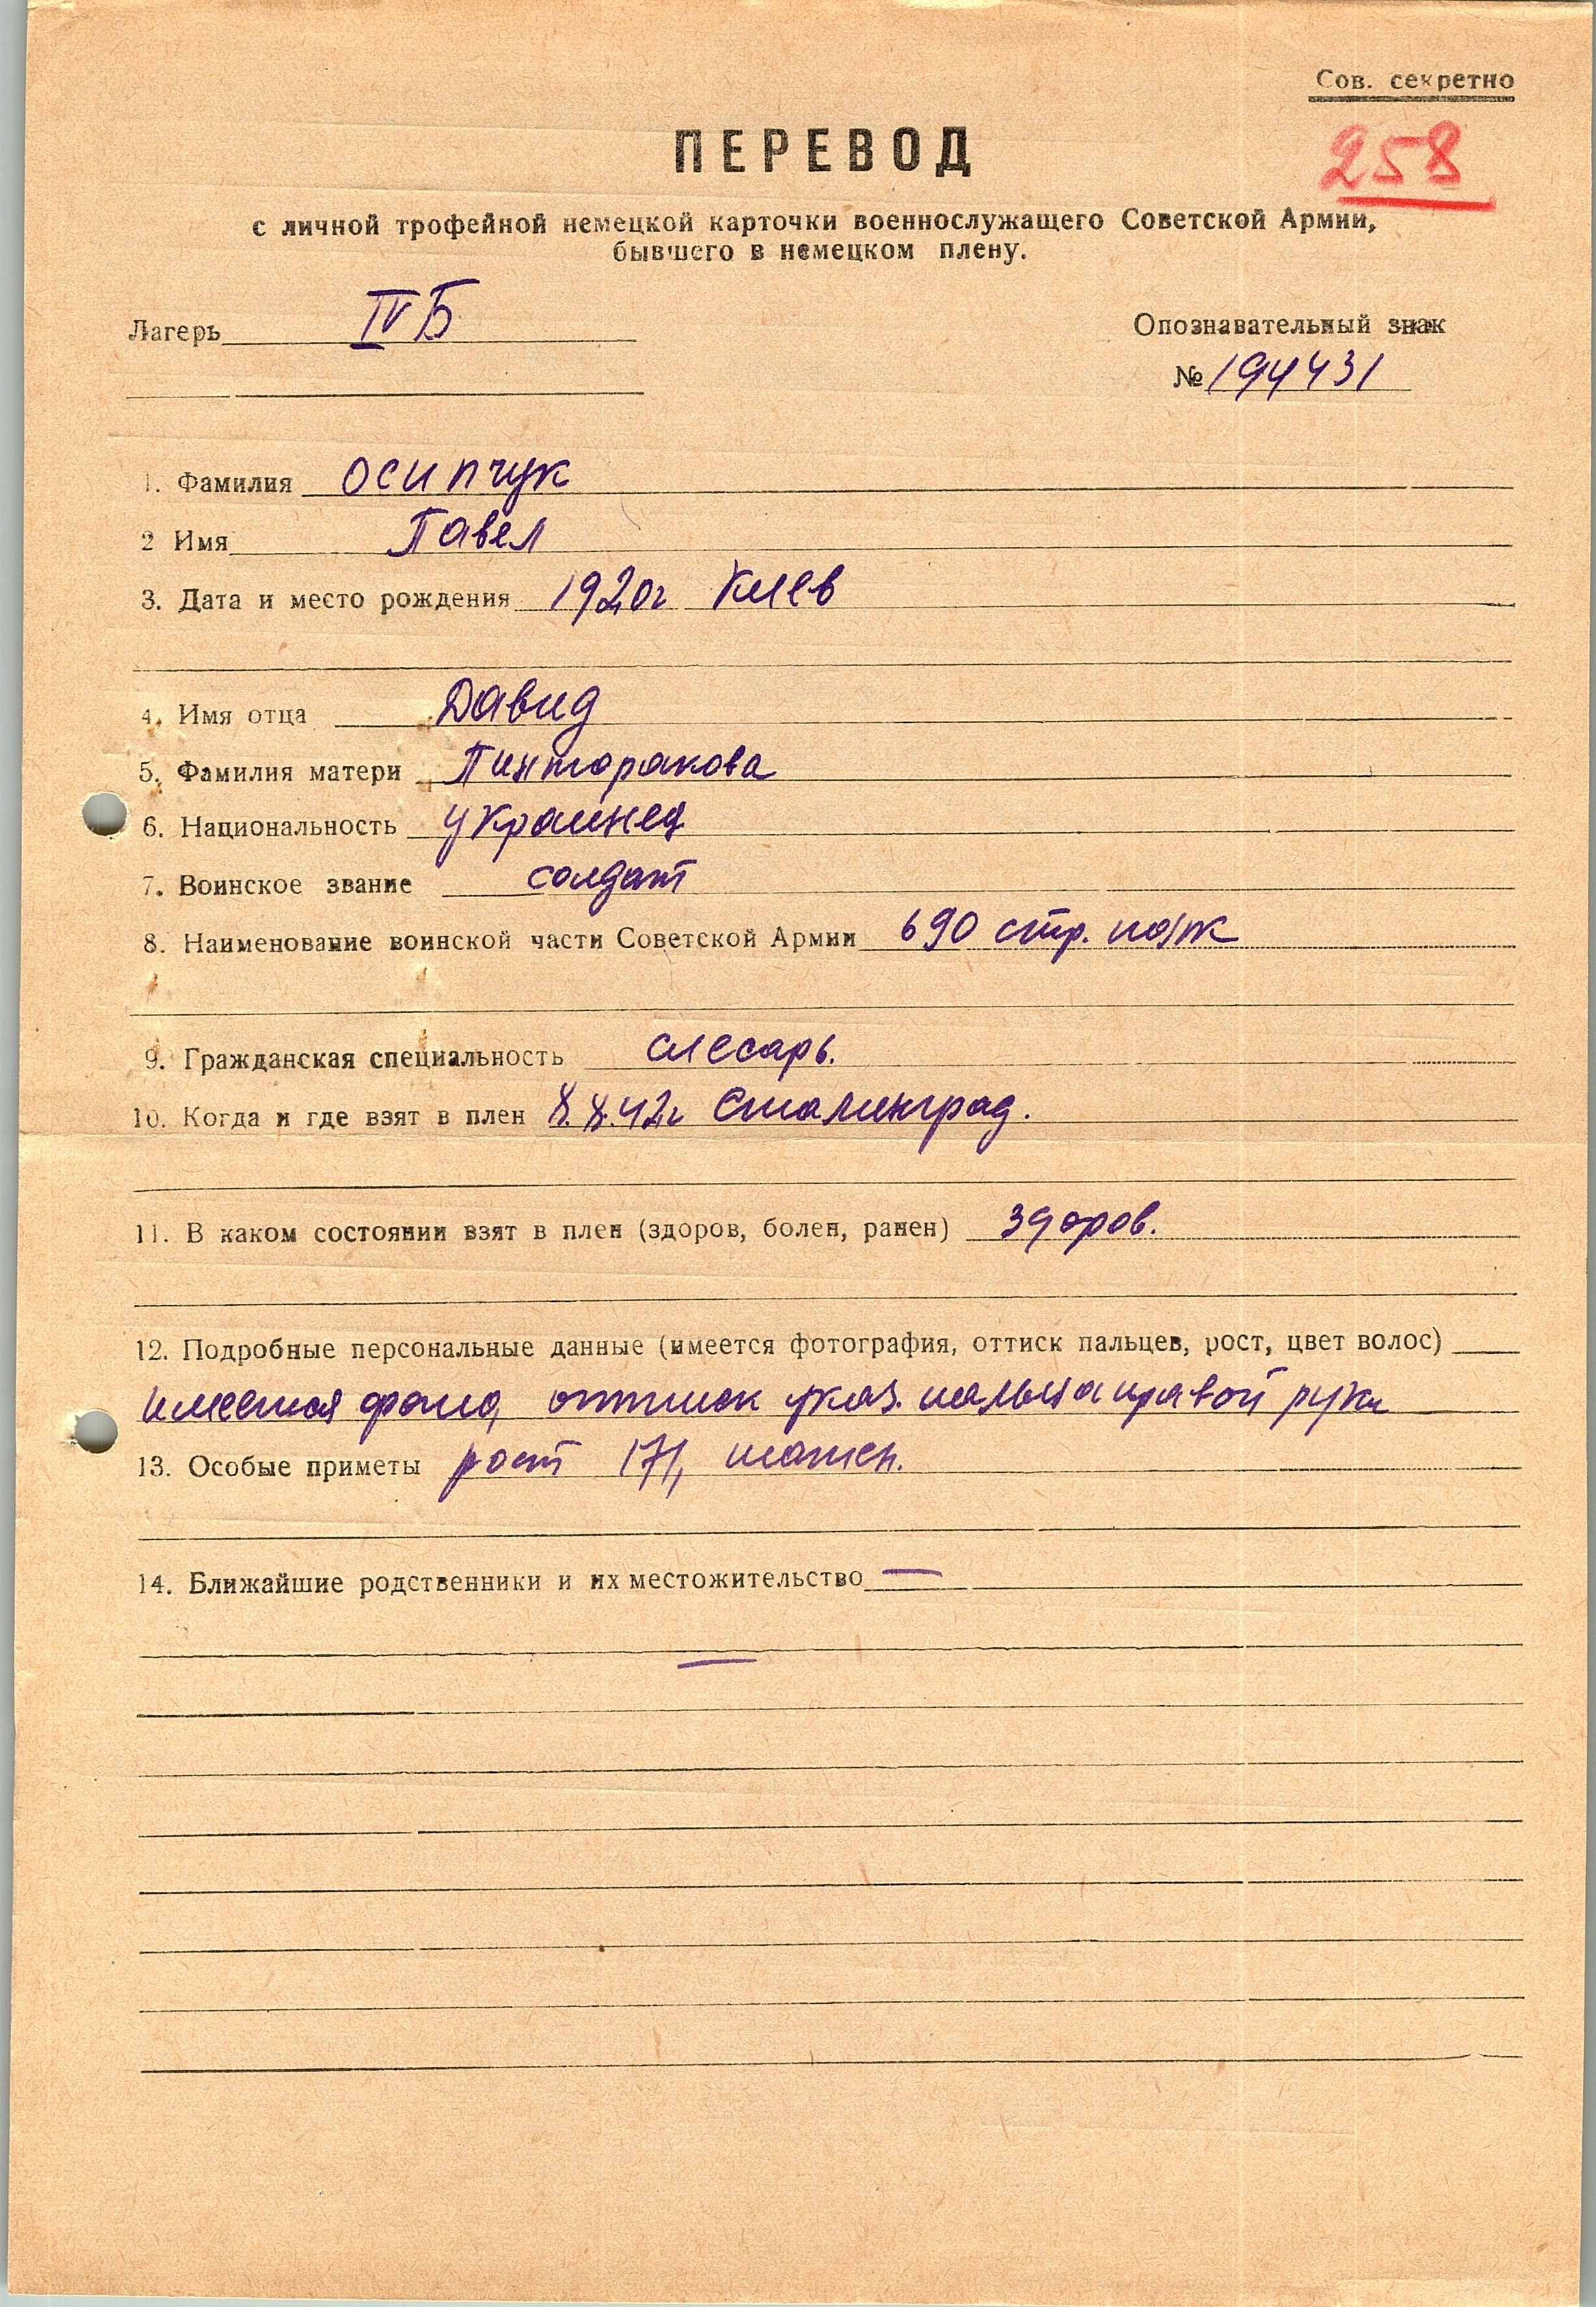 Сов. секретно
ПЕРЕВОД
258
с личной трофейной немецкой карточки военнослужащего Советской Армии,
бывшего в немецком плену.
Лагерь IV Б
Опознавательный знак
№ 194431
1. Фамилия Осипчук
2 Имя Павел
3. Дата и место рождения 1920г Киев
4. Имя отца Давид
5. Фамилия матери Пинторакова
6. Национальность украинец
7. Воинское звание солдат
8. Наименование воинской части Советской Армии 690 стр. полк
9. Гражданская специальность слесарь.
10. Когда и где взят в плен 8.8.42г Сталинград.
11. В каком состоянии взят в плен (здоров, болен, ранен) здоров.
12. Подробные персональные данные (имеется фотография, оттиск пальцев, рост, цвет волос)
имеется оттиск указ. пальца правой руки
13. Особые приметы рост 171,
14. Ближайшие родственники и их местожительство —
—